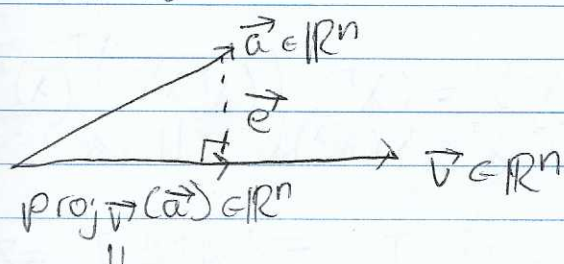 a⃗ ∈ ℝⁿ
e⃗
v⃗ ∈ ℝⁿ
proj_v⃗ (a⃗) ∈ ℝⁿ
||